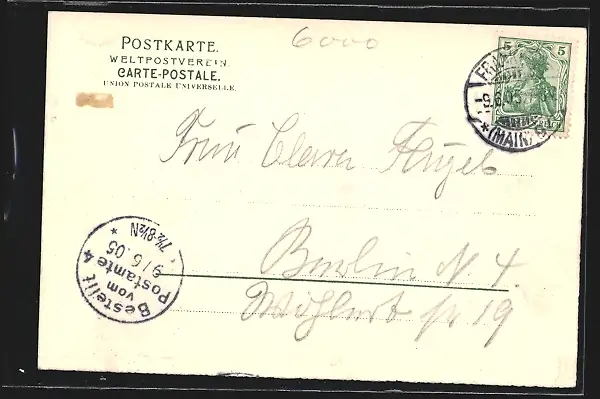 POSTKARTE.
WELTPOSTVEREIN.
CARTE-POSTALE.
UNION POSTALE UNIVERSELLE.
6000
5 5
(MAIN)
Frau Clara
Berlin N. 4.
Wöhlert str 19
Bestellt
vom
Postamte 4
9/6.05
7½-8½N